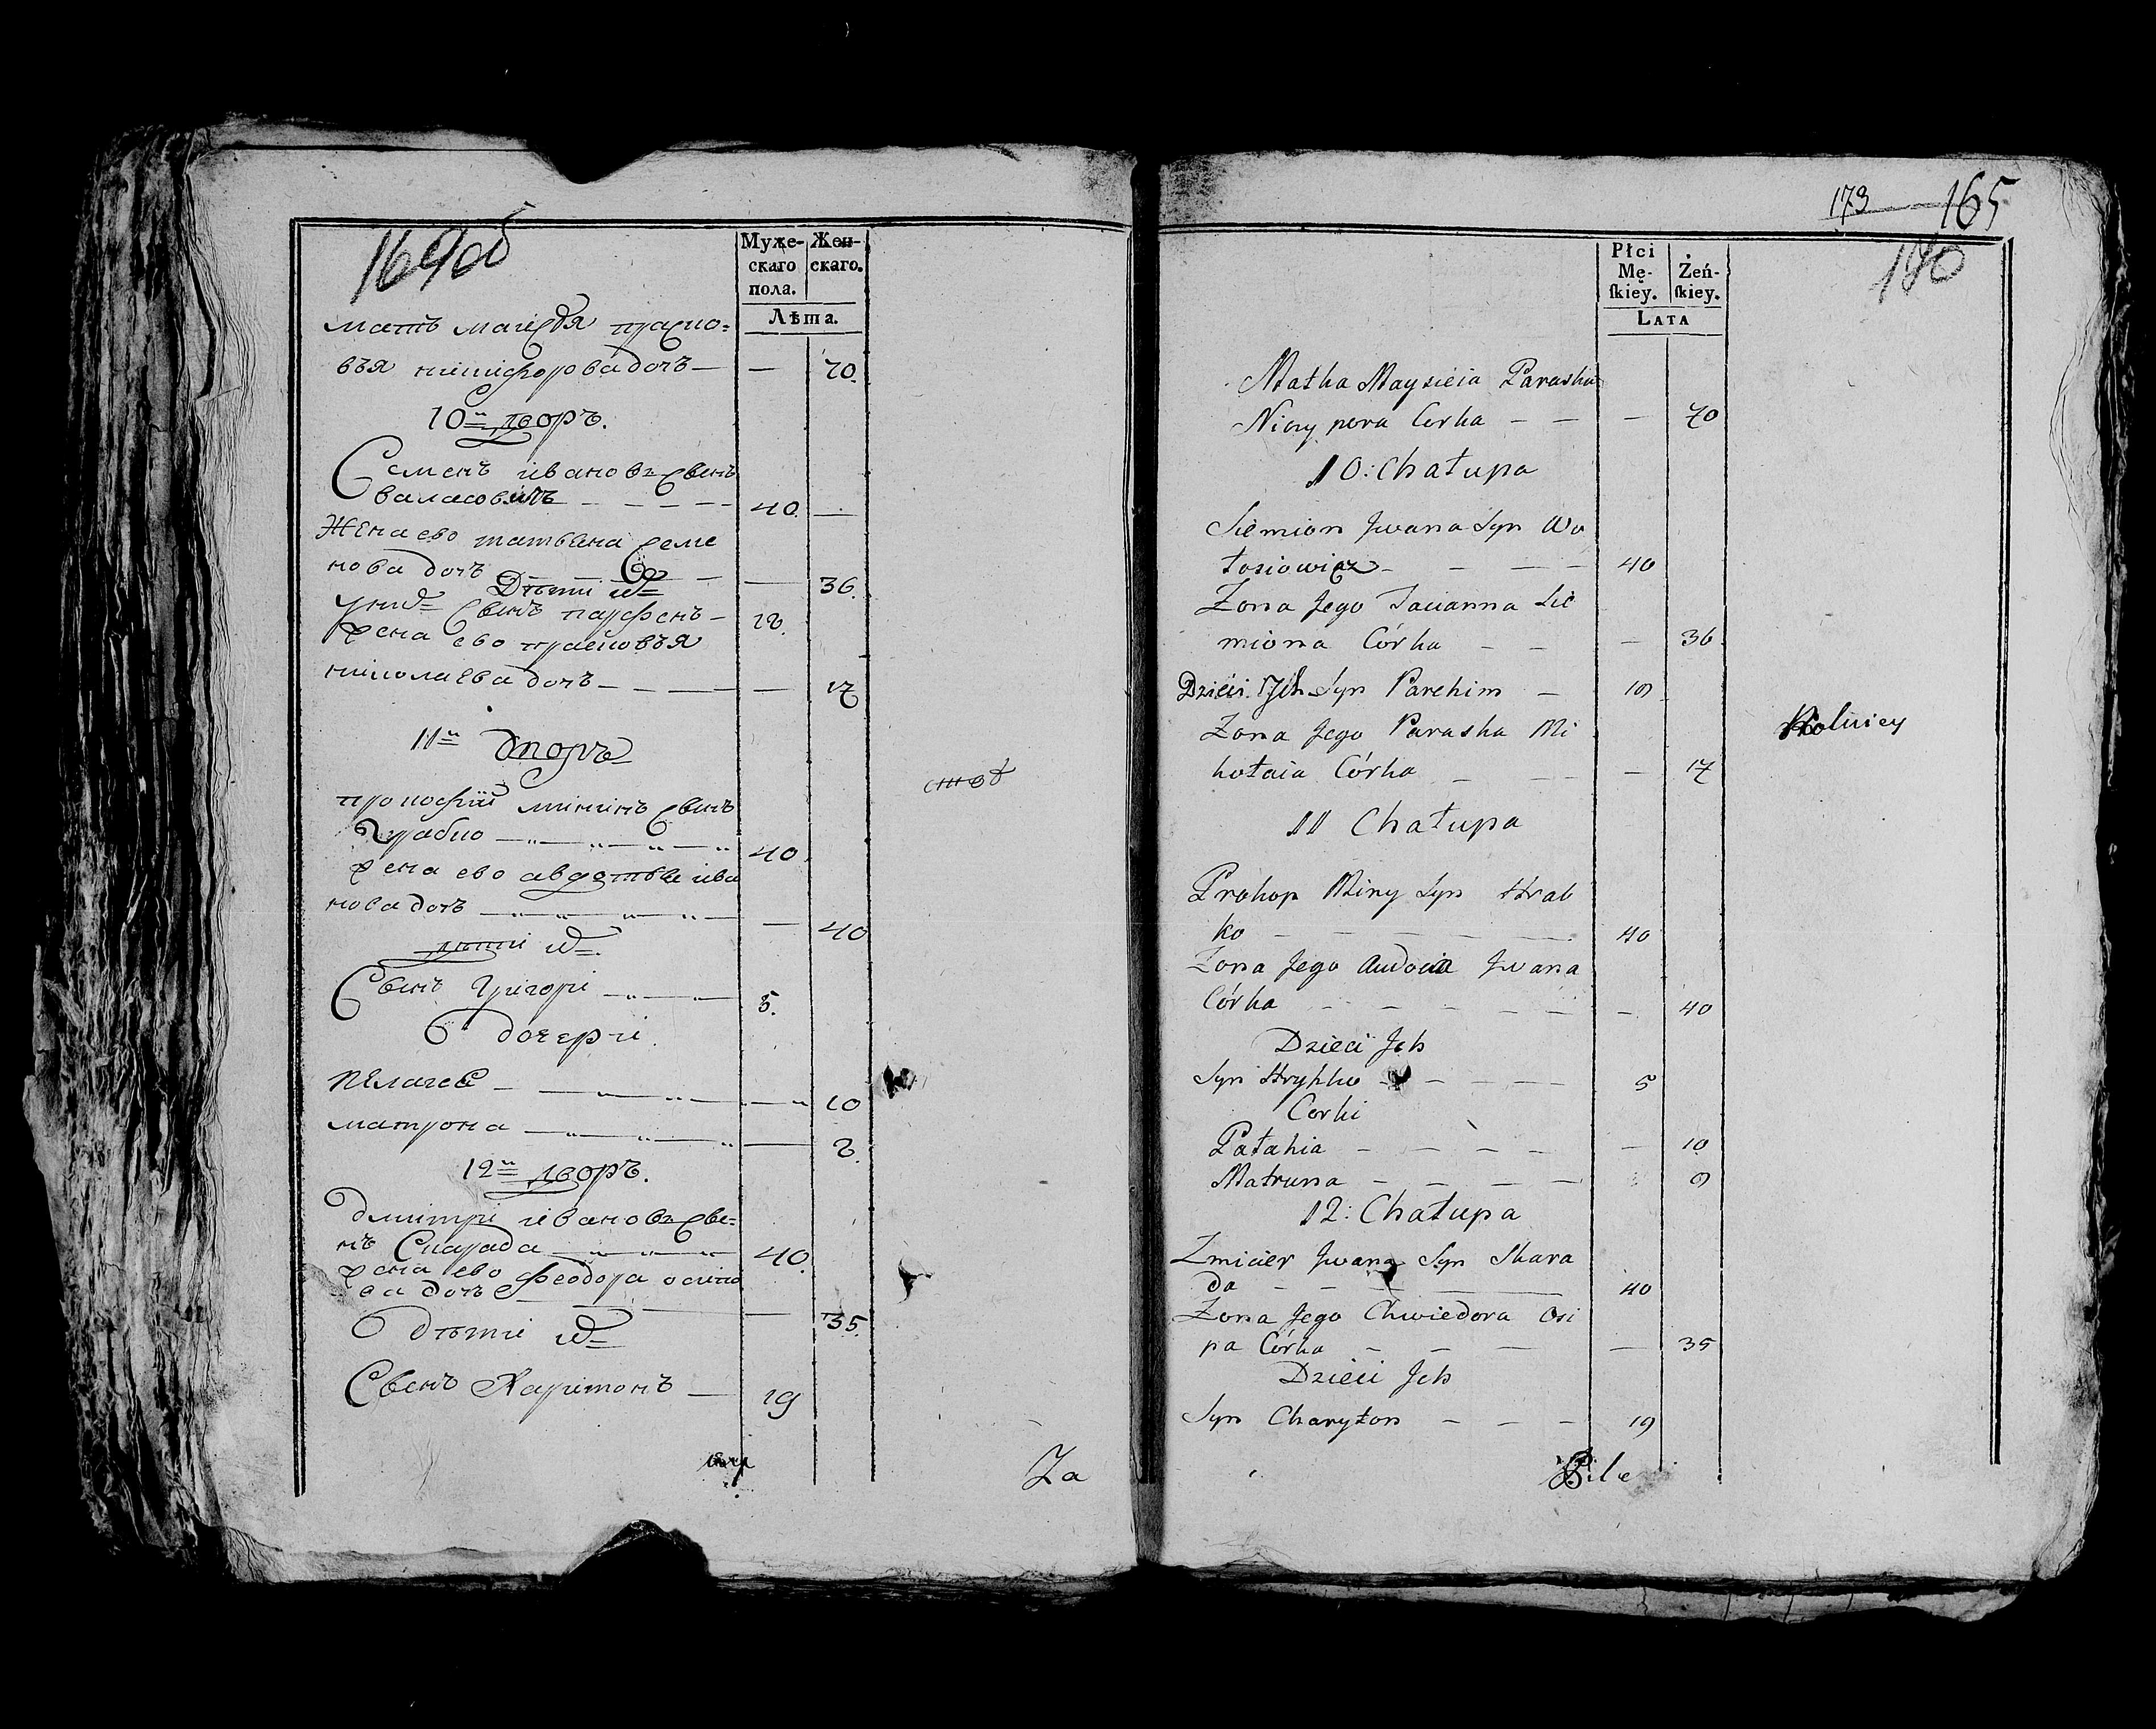 169об
Муже-
скаго
пола.
Жен-
скаго.
Лѣта.
мать моисѣя праско-
вья никифорова дочь — — 70.
10й дворъ.
Семенъ ивановъ сынъ
валасовичъ — — — — 40. —
Жена ево татьяна семе
нова дочь — — — 36.
Дѣти их
сынъ парфенъ — 19.
жена ево прасковья
николаева дочь — — — — — 17
11й дворъ
прокофiй мининъ сынъ
Грабко — — — — 40.
жена ево авдотья ива
нова дочь — — — — — 40
дѣти их.
Сынъ григорiи — — — 5.
дочери
пелагея — — — — — 10
матрона — — — — — 9.
12й дворъ.
дмитрi ивановъ сы-
нъ Скарада — — — 40.
жена ево феодора осипо
ва дочь — — — 35.
дѣти их
Сынъ Харитонъ — 19
Za
173 165
190
Płci
Mę-
skiey.
Żeń-
skiey.
LATA
Matka Maysieia Paraska
Niczypora Corka — — — 70
10: Chałupa
Siemion Jwana Syn Wo
łosiowicz — — — — 40
Zona Jego Tacianna Sie
miona Córka — — — 36
Dzieci Jch Syn Parchim — 19
Zona Jego Paraska Mi
kołaia Córka — — — — 17
11 Chałupa
Prokop Miny Syn Hrab
ko — — — — — 40
Zona Jego Audocia Jwana
Córka — — — — — — 40
Dzieci Jch
Syn Hryhko — — — — 5
Corki
Pałahia — — — — — 10
Matruna — — — — 9
12: Chałupa
Zmicier Jwana Syn Skara
da — — — 40
Zona Jego Chwiedora Osi
pa Córka — — — — 35
Dzieci Jch
Syn Charyton — — — 19